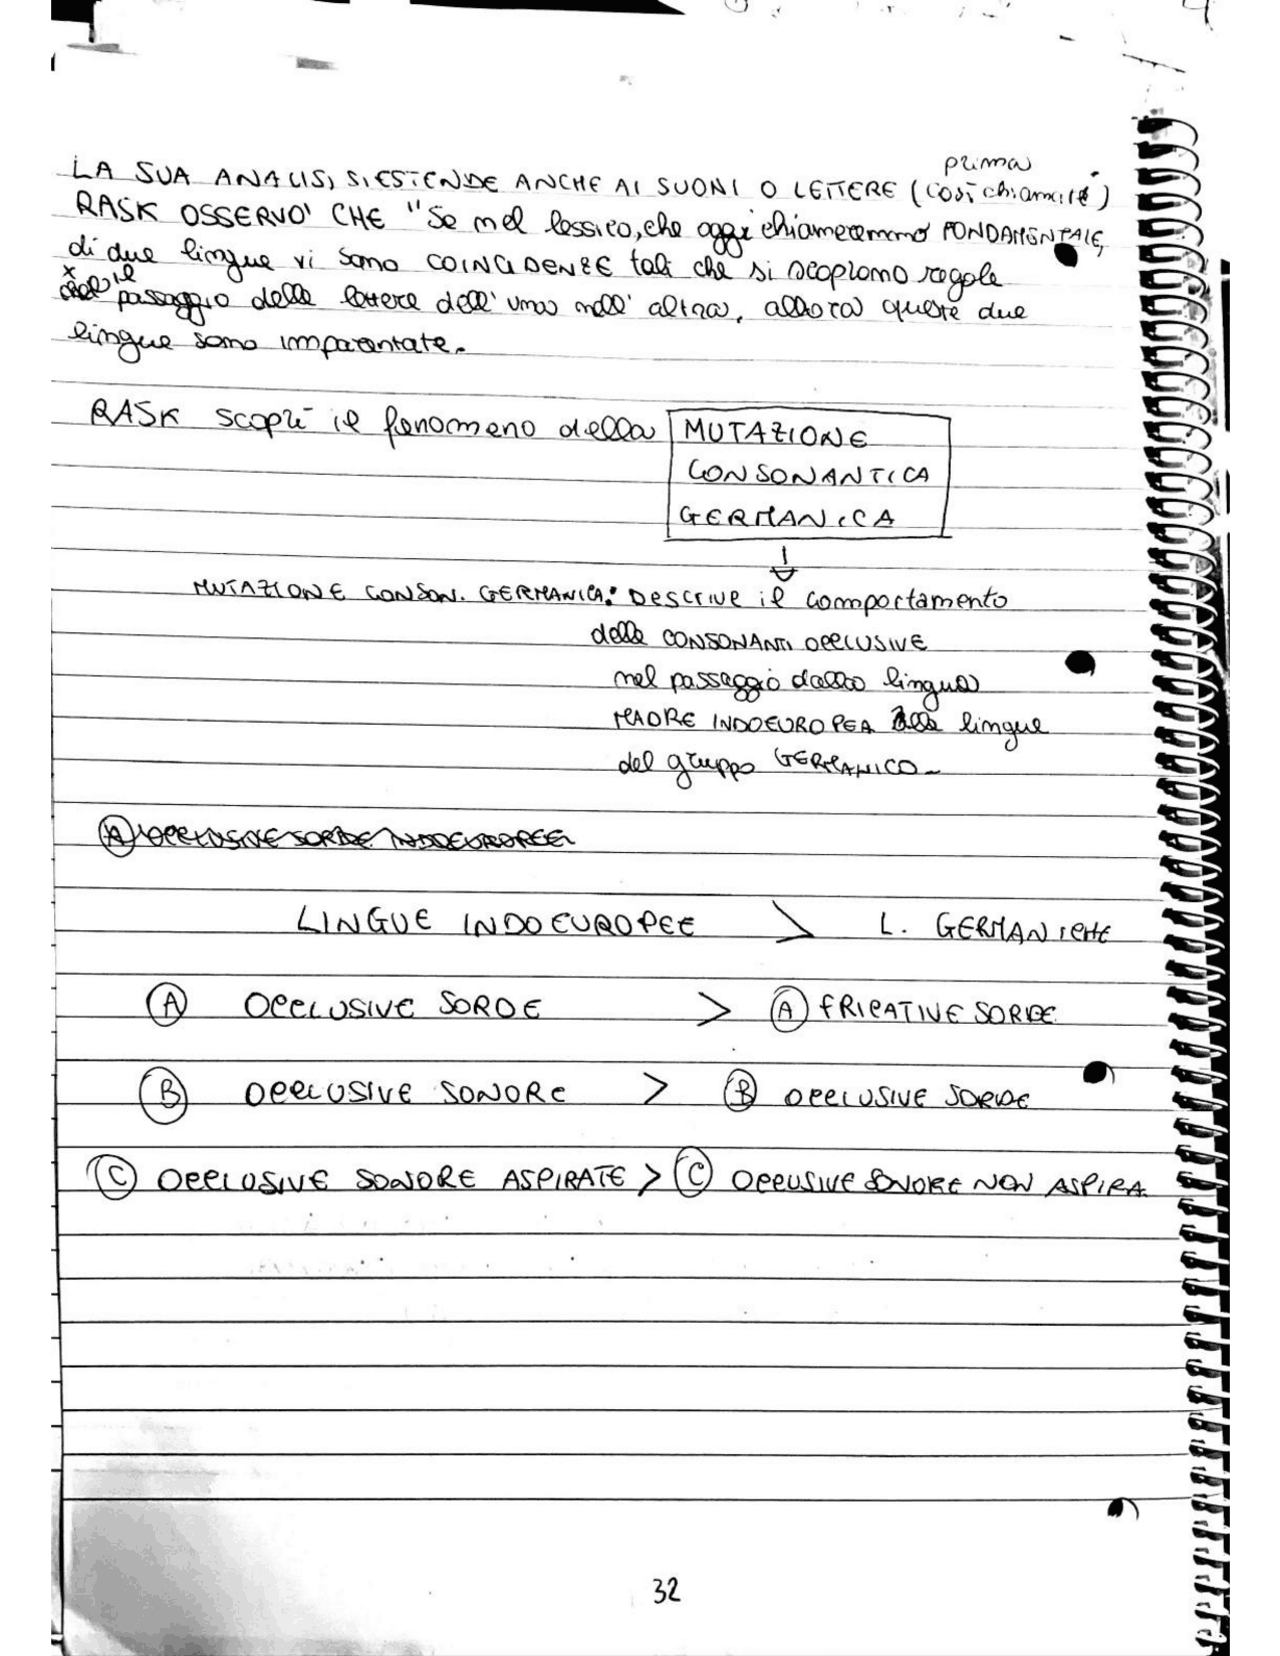 prima
LA SUA ANALISI SI ESTENDE ANCHE AI SUONI O LETTERE (così chiamate)
RASK OSSERVO' CHE "Se nel lessico, che oggi chiameremmo FONDAMENTALE,
di due lingue vi sono COINCIDENZE tali che si scoprono regole
x il
passaggio delle lettere dell' una nell' altra, allora queste due
lingue sono imparentate.
RASK scoprì il fenomeno della MUTAZIONE
CONSONANTICA
GERMANICA
MUTAZIONE CONSON. GERMANICA: DESCRIVE il comportamento
delle CONSONANTI OCCLUSIVE
nel passaggio dalla lingua
MADRE INDOEUROPEA alle lingue
del gruppo GERMANICO-
(A) OCCLUSIVE SORDE INDOEUROPEE
LINGUE INDOEUROPEE > L. GERMANICHE
(A) OCCLUSIVE SORDE > (A) FRICATIVE SORDE
(B) OCCLUSIVE SONORE > (B) OCCLUSIVE SORDE
(C) OCCLUSIVE SONORE ASPIRATE > (C) OCCLUSIVE SONORE NON ASPIRA.
32